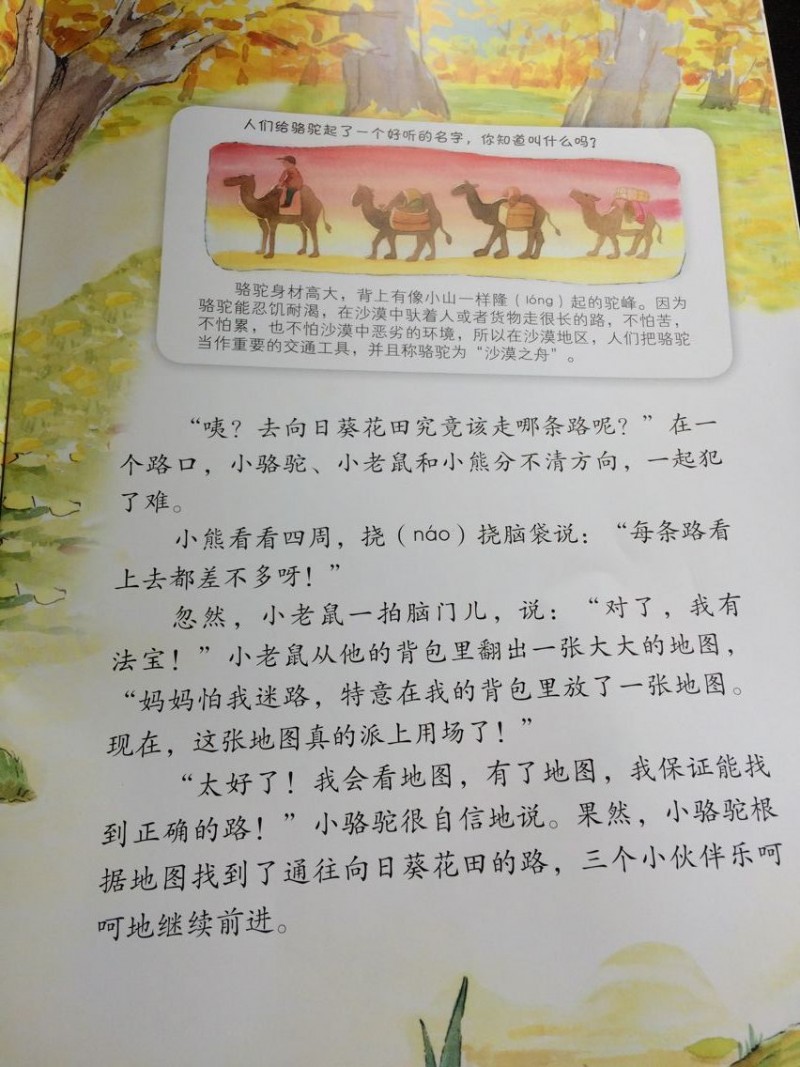 人们给骆驼起了一个好听的名字，你知道叫什么吗？
骆驼身材高大，背上有像小山一样隆（lóng）起的驼峰。因为
骆驼能忍饥耐渴，在沙漠中驮着人或者货物走很长的路，不怕苦，
不怕累，也不怕沙漠中恶劣的环境，所以在沙漠地区，人们把骆驼
当作重要的交通工具，并且称骆驼为“沙漠之舟”。
“咦？去向日葵花田究竟该走哪条路呢？”在一
个路口，小骆驼、小老鼠和小熊分不清方向，一起犯
了难。
小熊看看四周，挠（náo）挠脑袋说：“每条路看
上去都差不多呀！”
忽然，小老鼠一拍脑门儿，说：“对了，我有
法宝！”小老鼠从他的背包里翻出一张大大的地图，
“妈妈怕我迷路，特意在我的背包里放了一张地图。
现在，这张地图真的派上用场了！”
“太好了！我会看地图，有了地图，我保证能找
到正确的路！”小骆驼很自信地说。果然，小骆驼根
据地图找到了通往向日葵花田的路，三个小伙伴乐呵
呵地继续前进。